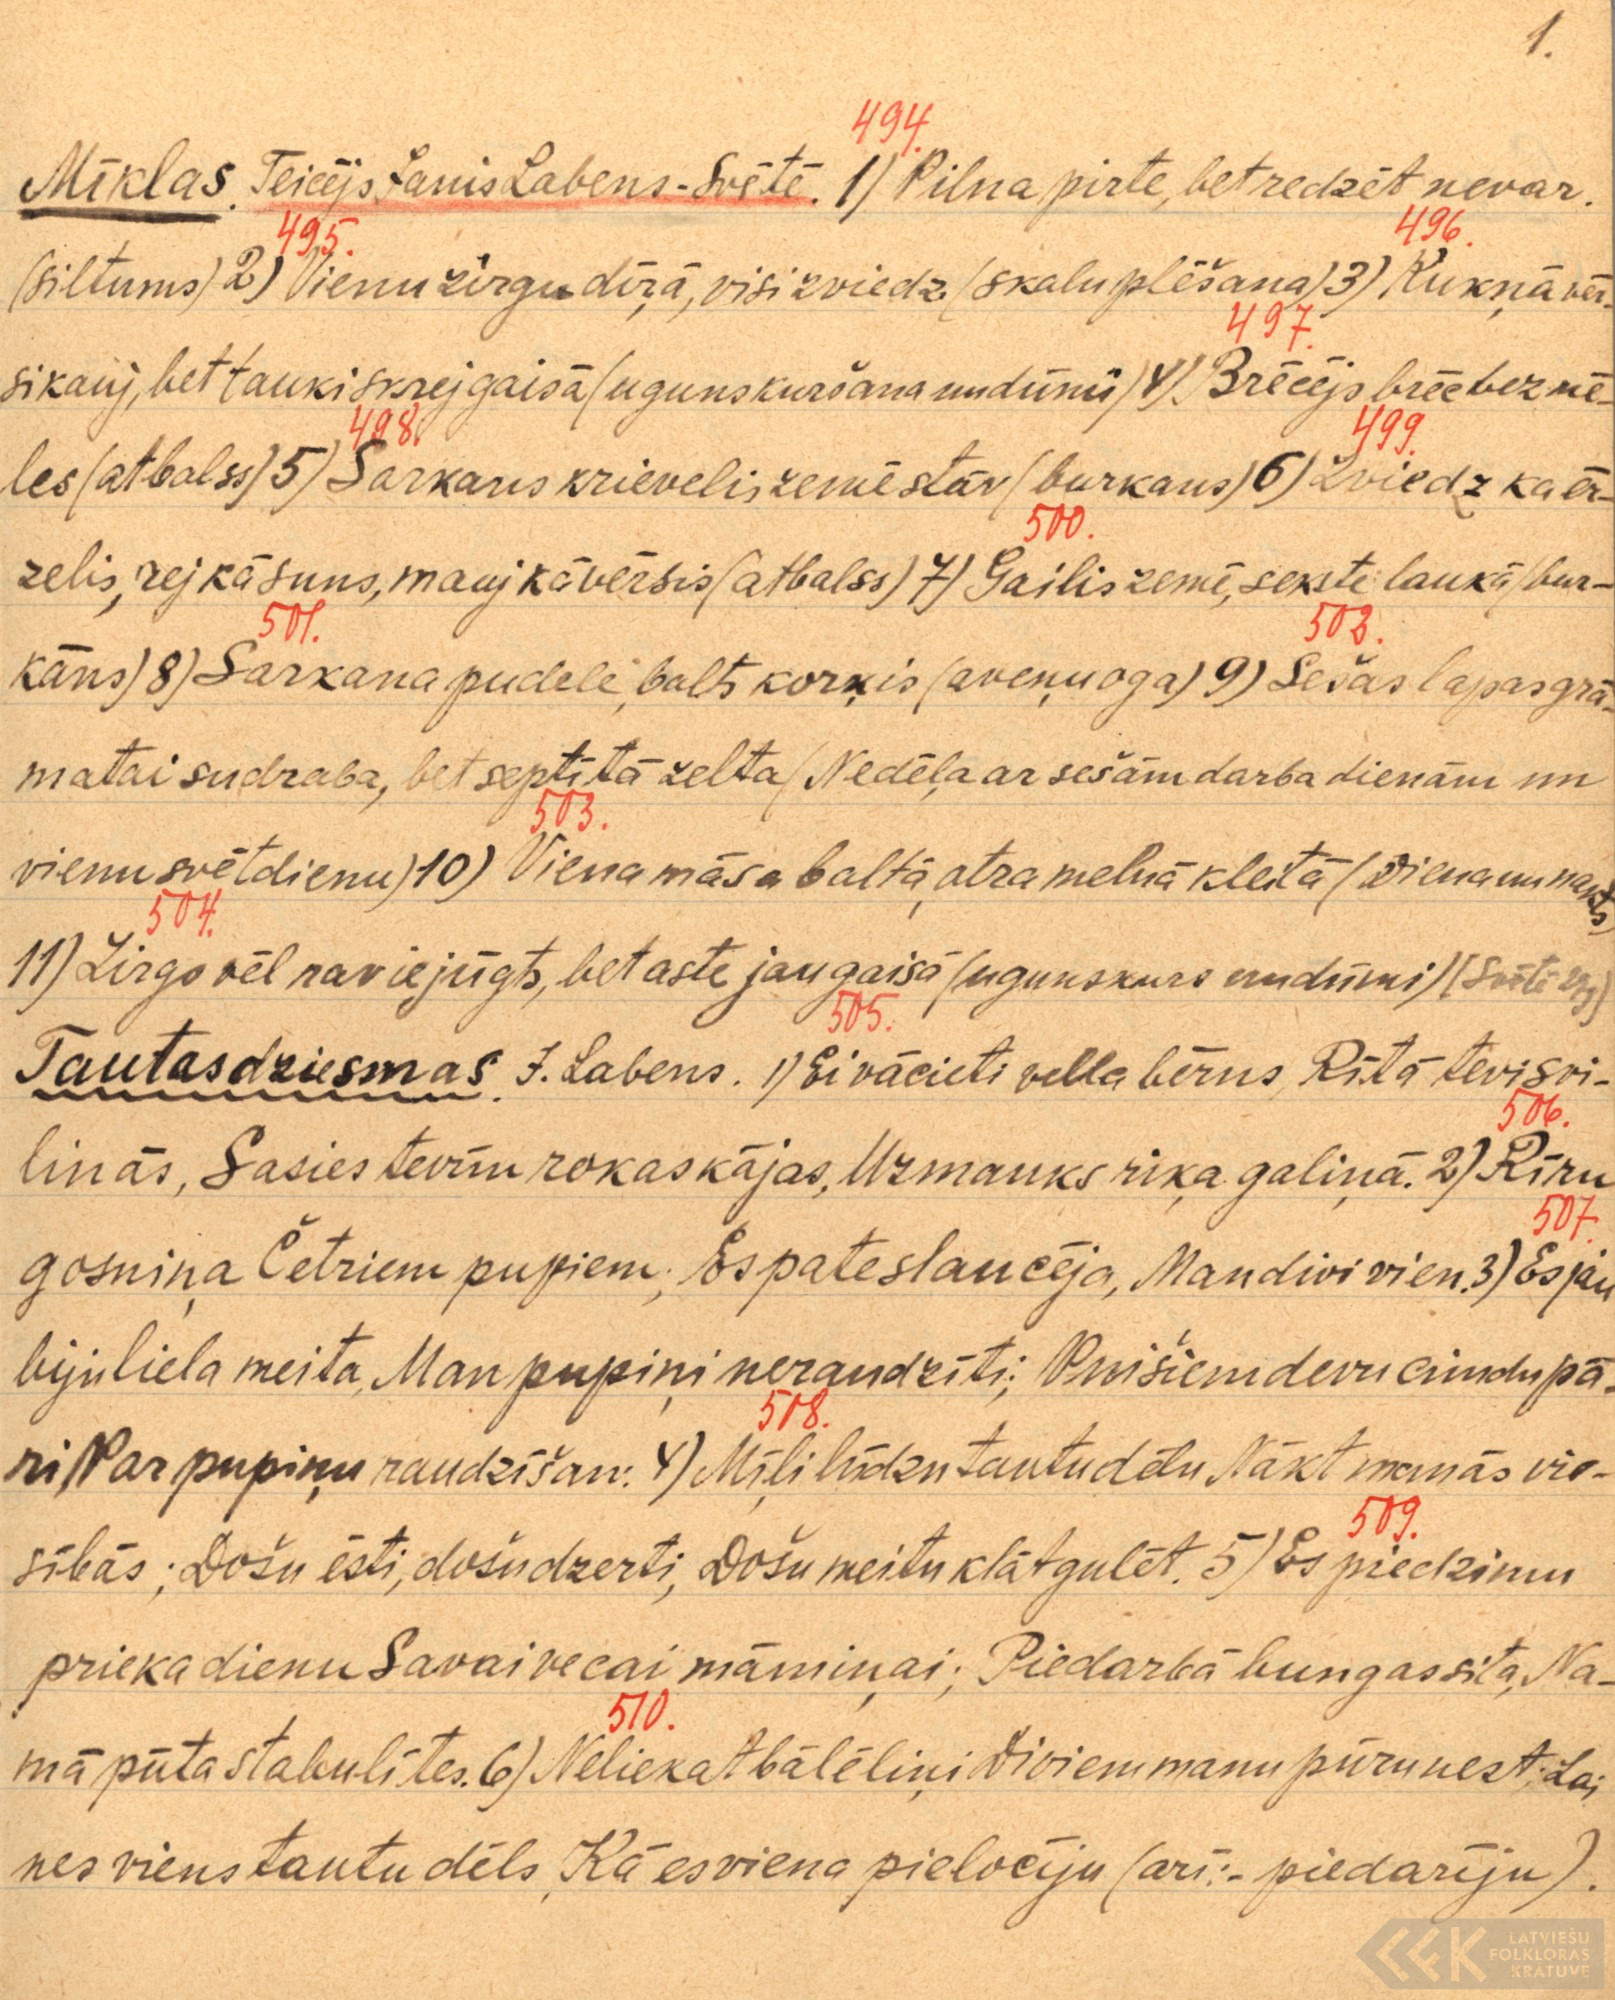 1.
494.
Mīklas. Teicējs Janis Labens - Svētē. 1) Pilna pirte, bet redzēt nevar.
495. 496.
(siltums) 2) Vienu zirgu dīŗā, visi zviedz (skalu plēšana) 3) Ķukņā vēr-
497.
si kauj, bet tauki skrej gaisā (uguns kuršana un dūmi) 4) Brēcējs brēc bez mē-
498. 499.
les (atbalss) 5) Sarkans krievelis zemē stāv (burkans) 6) Zviedz ka ēr-
500.
zelis, rej kā suns, mauj kā vērsis (atbalss) 7) Gailis zemē, sekste laukā (bur-
501. 502.
kāns) 8) Sarkana pudele, balts korķis (aveņu oga) 9) Sešas lapas grā-
matai sudraba, bet septītā zelta (Nedēļa ar sešām darba dienām un
503.
vienu svētdienu) 10) Viena māsa baltā, otra melnā kleitā (Diena un nakts)
504.
11) Zirgs vēl nav iejūgts, bet aste jau gaisā (ugunskurs un dūmi) [Svētē
505.
Tautasdziesmas. J. Labens. 1) Ei vācieti vella bērns, Rītā tevi svi-
506.
linās, Sasies tevīm rokas kājas, Uzmauks riķa galiņā. 2) Rīru
507.
gosniņa Četriem pupiem; Es pate slaucēja, Man divi vien. 3) Es jau
biju liela meita, Man pupiņi neraudzīti; Puišiem devu cimdu pā-
508.
ri Par pupiņu raudzīšan: 4) Mīļi lūdzu tautu dēlu Nākt manās vie-
509.
sībās; Došu ēsti, došu dzerti, Došu meitu klāt gulēt. 5) Es piedzimu
prieka dienu Savai vecai māmiņai; Piedarbā bungas sita, Na-
510.
mā pūta stabulītes. 6) Neliekat bālēliņi Diviem manu pūru nest; Lai
nes viens tautu dēls, Kā es viena pielocīju (arī:- piedarīju).
LATVIEŠU
FOLKLORAS
KRĀTUVE